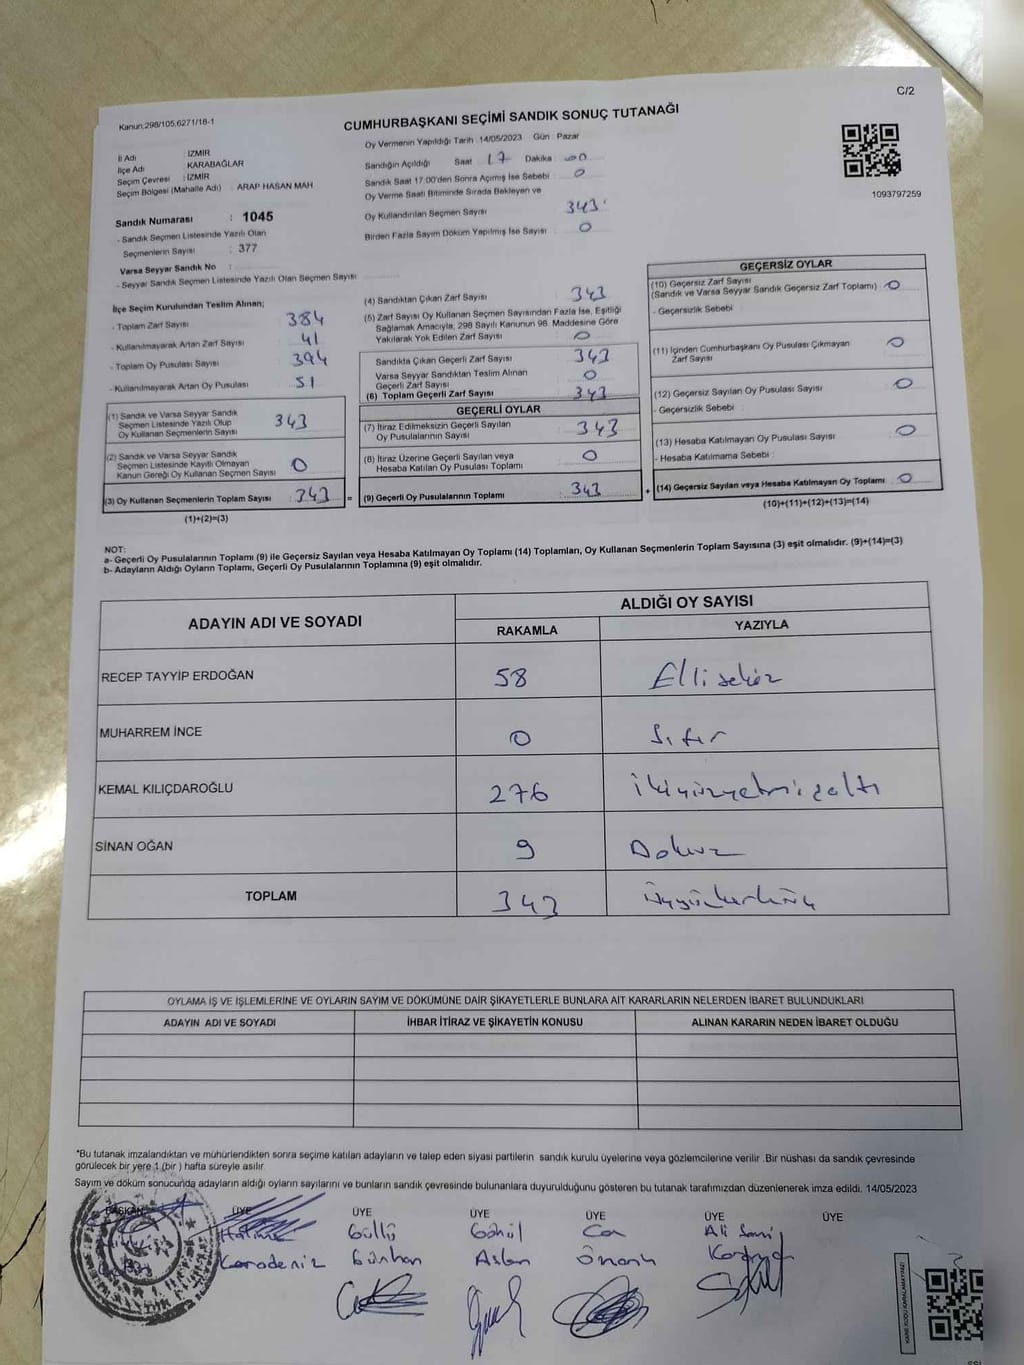 C/2
Kanun:298/105,6271/18-1
CUMHURBAŞKANI SEÇİMİ SANDIK SONUÇ TUTANAĞI
İl Adı : İZMİR
İlçe Adı : KARABAĞLAR
Seçim Çevresi : İZMİR
Seçim Bölgesi (Mahalle Adı) : ARAP HASAN MAH
Sandık Numarası : 1045
- Sandık Seçmen Listesinde Yazılı Olan
Seçmenlerin Sayısı : 377
Varsa Seyyar Sandık No :
- Seyyar Sandık Seçmen Listesinde Yazılı Olan Seçmen Sayısı
Oy Vermenin Yapıldığı Tarih :14/05/2023 Gün : Pazar
Sandığın Açıldığı Saat 17 Dakika 00
Sandık Saat 17:00'den Sonra Açımış İse Sebebi : 0
Oy Verme Saati Bitiminde Sırada Bekleyen ve
Oy Kullandırılan Seçmen Sayısı 343
Birden Fazla Sayım Döküm Yapılmış İse Sayısı 0
1093797259
İlçe Seçim Kurulundan Teslim Alınan;
- Toplam Zarf Sayısı 384
- Kullanılmayarak Artan Zarf Sayısı 41
- Toplam Oy Pusulası Sayısı 394
- Kullanılmayarak Artan Oy Pusulası 51
(1) Sandık ve Varsa Seyyar Sandık
Seçmen Listesinde Yazılı Olup
Oy Kullanan Seçmenlerin Sayısı 343
(2) Sandık ve Varsa Seyyar Sandık
Seçmen Listesinde Kayıtlı Olmayan
Kanun Gereği Oy Kullanan Seçmen Sayısı 0
(3) Oy Kullanan Seçmenlerin Toplam Sayısı : 343 =
(1)+(2)=(3)
(4) Sandıktan Çıkan Zarf Sayısı 343
(5) Zarf Sayısı Oy Kullanan Seçmen Sayısından Fazla İse, Eşitliği
Sağlamak Amacıyla, 298 Sayılı Kanunun 98. Maddesine Göre
Yakılarak Yok Edilen Zarf Sayısı 0
Sandıkta Çıkan Geçerli Zarf Sayısı 343
Varsa Seyyar Sandıktan Teslim Alınan
Geçerli Zarf Sayısı 0
(6) Toplam Geçerli Zarf Sayısı 343
GEÇERLİ OYLAR
(7) İtiraz Edilmeksizin Geçerli Sayılan
Oy Pusulalarının Sayısı 343
(8) İtiraz Üzerine Geçerli Sayılan veya
Hesaba Katılan Oy Pusulası Toplamı 0
(9) Geçerli Oy Pusulalarının Toplamı 343 +
GEÇERSİZ OYLAR
(10) Geçersiz Zarf Sayısı
(Sandık ve Varsa Seyyar Sandık Geçersiz Zarf Toplamı) 0
- Geçersizlik Sebebi :
(11) İçinden Cumhurbaşkanı Oy Pusulası Çıkmayan
Zarf Sayısı 0
(12) Geçersiz Sayılan Oy Pusulası Sayısı 0
- Geçersizlik Sebebi :
(13) Hesaba Katılmayan Oy Pusulası Sayısı 0
- Hesaba Katılmama Sebebi :
(14) Geçersiz Sayılan veya Hesaba Katılmayan Oy Toplamı 0
(10)+(11)+(12)+(13)=(14)
NOT:
a- Geçerli Oy Pusulalarının Toplamı (9) ile Geçersiz Sayılan veya Hesaba Katılmayan Oy Toplamı (14) Toplamları, Oy Kullanan Seçmenlerin Toplam Sayısına (3) eşit olmalıdır. (9)+(14)=(3)
b- Adayların Aldığı Oyların Toplamı, Geçerli Oy Pusulalarının Toplamına (9) eşit olmalıdır.
ADAYIN ADI VE SOYADI ALDIĞI OY SAYISI
RAKAMLA YAZIYLA
RECEP TAYYİP ERDOĞAN 58 Ellisekiz
MUHARREM İNCE 0 Sıfır
KEMAL KILIÇDAROĞLU 276 ikiyüzyetmişaltı
SİNAN OĞAN 9 Dokuz
TOPLAM 343 üçyüzkırküç
OYLAMA İŞ VE İŞLEMLERİNE VE OYLARIN SAYIM VE DÖKÜMÜNE DAİR ŞİKAYETLERLE BUNLARA AİT KARARLARIN NELERDEN İBARET BULUNDUKLARI
ADAYIN ADI VE SOYADI İHBAR İTİRAZ VE ŞİKAYETİN KONUSU ALINAN KARARIN NEDEN İBARET OLDUĞU
*Bu tutanak imzalandıktan ve mühürlendikten sonra seçime katılan adayların ve talep eden siyasi partilerin sandık kurulu üyelerine veya gözlemcilerine verilir .Bir nüshası da sandık çevresinde
görülecek bir yere 1 (bir ) hafta süreyle asılır.
Sayım ve döküm sonucunda adayların aldığı oyların sayılarını ve bunların sandık çevresinde bulunanlara duyurulduğunu gösteren bu tutanak tarafımızdan düzenlenerek imza edildi. 14/05/2023
BAŞKAN ÜYE ÜYE ÜYE ÜYE ÜYE ÜYE
Güllü Gönül Ali Sami
Karadeniz Günhan Aslan